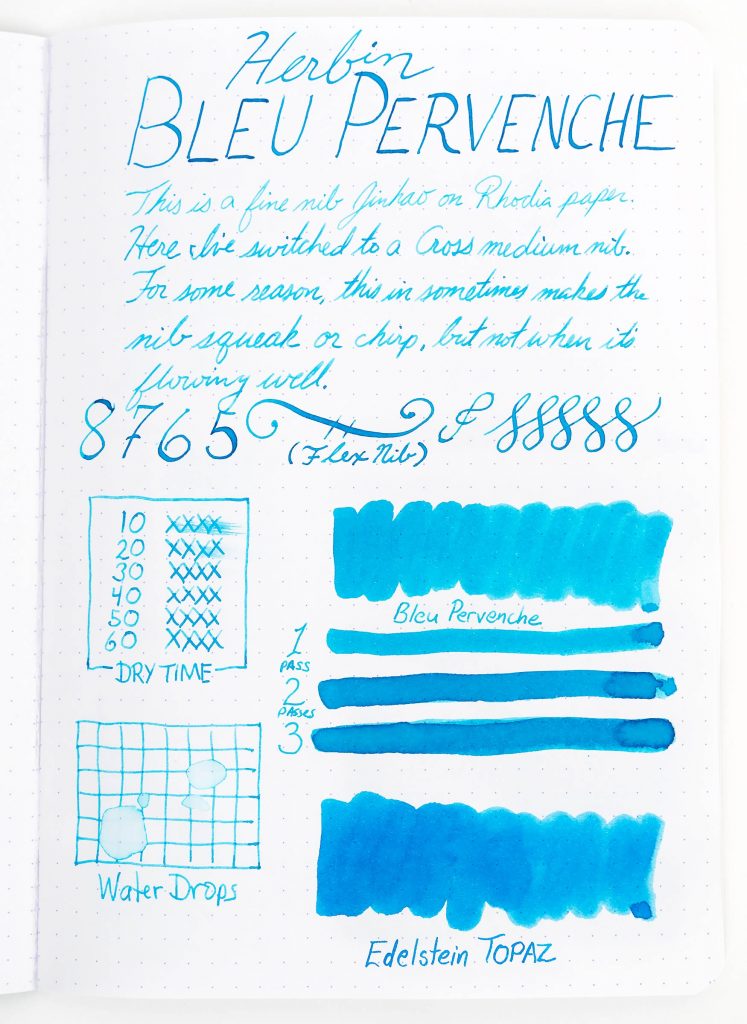 Herbin
BLEU PERVENCHE
This is a fine nib Jinhao on Rhodia paper.
Here I've switched to a Cross medium nib.
For some reason, this in sometimes makes the
nib squeak or chirp, but not when it's
flowing well.
8 7 6 5
(Flex Nib)
10 XXXX
20 XXXX
30 XXXX
40 XXXX
50 XXXX
60 XXXX
DRY TIME
Bleu Pervenche
1
PASS
2
PASSES
3
Water Drops
Edelstein TOPAZ